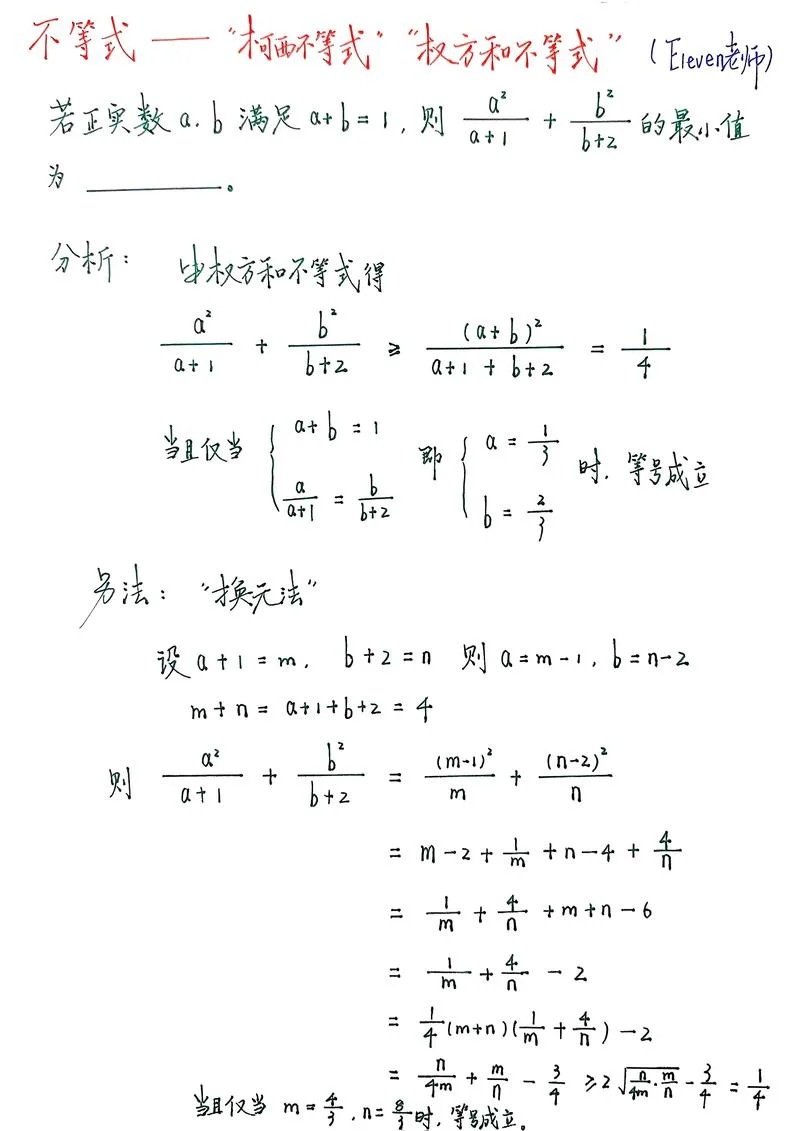 不等式 —— "柯西不等式" "权方和不等式" (Eleven老师)
若正实数 a. b 满足 a+b=1, 则 a²/(a+1) + b²/(b+2) 的最小值
为 ________。
分析: 由权方和不等式得
a²/(a+1) + b²/(b+2) ≥ (a+b)²/(a+1+b+2) = 1/4
当且仅当 { a+b=1, a/(a+1) = b/(b+2) 即 { a=1/3, b=2/3 时, 等号成立
另法: "换元法"
设 a+1=m, b+2=n 则 a=m-1, b=n-2
m+n = a+1+b+2 = 4
则 a²/(a+1) + b²/(b+2) = (m-1)²/m + (n-2)²/n
= m-2+1/m+n-4+4/n
= 1/m+4/n+m+n-6
= 1/m+4/n-2
= 1/4(m+n)(1/m+4/n)-2
= n/4m+m/n-3/4 ≥2√(n/4m·m/n)-3/4=1/4
当且仅当 m=4/3, n=8/3时, 等号成立。